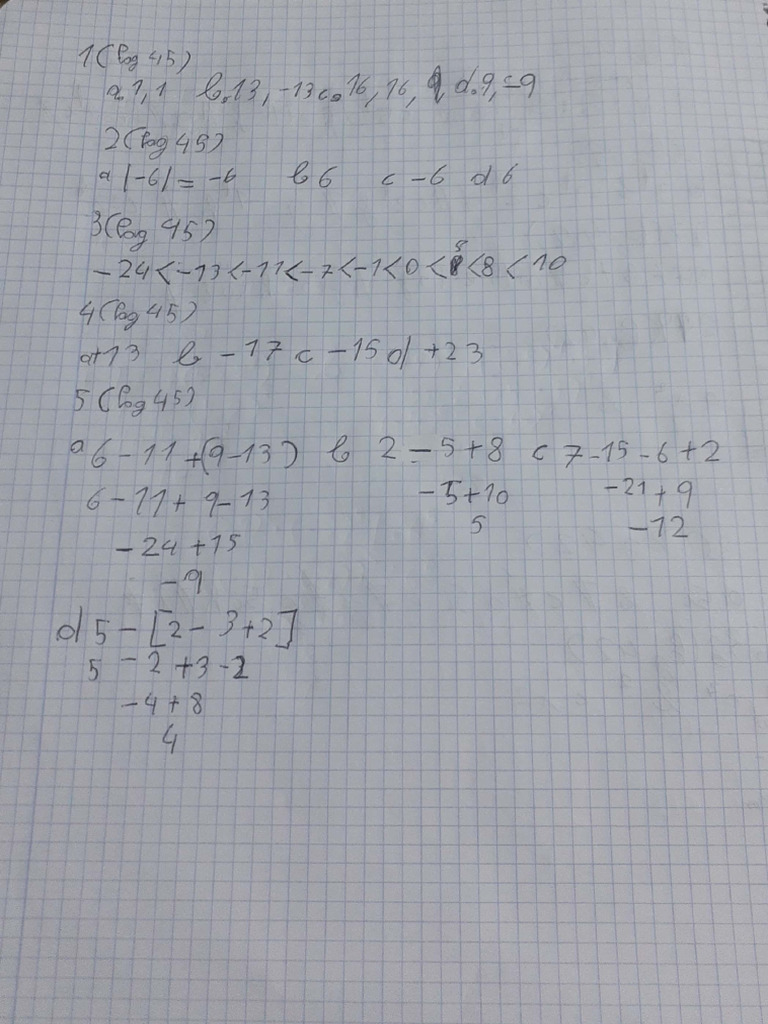 1(log 45)
a.1,1 b.13,-13 c.16,16, d.9,-9
2(log 45)
a |-6|= -6 b 6 c -6 d 6
3(log 45)
-24<-13<-11<-7<-1<0< <8<10
4(log 45)
a+13 b -17 c -15 d +23
5(log 45)
a 6-11+(9-13) b 2-5+8 c 7-15-6+2
6-11+9-13 -5+10 -21+9
-24+15 5 -12
-9
d 5-[2-3+2]
5-2+3-2
-4+8
4